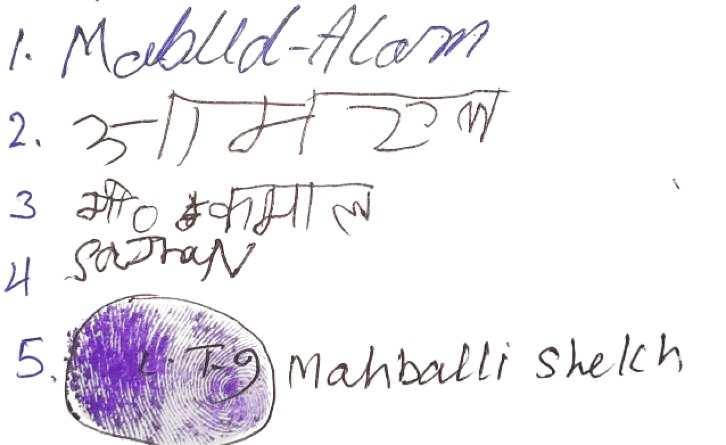 1. Mabud-Alam
2. आमरुल
3 मो० कमाल
4 SaJhaN
5. L.T.g Mahballi Shelkh